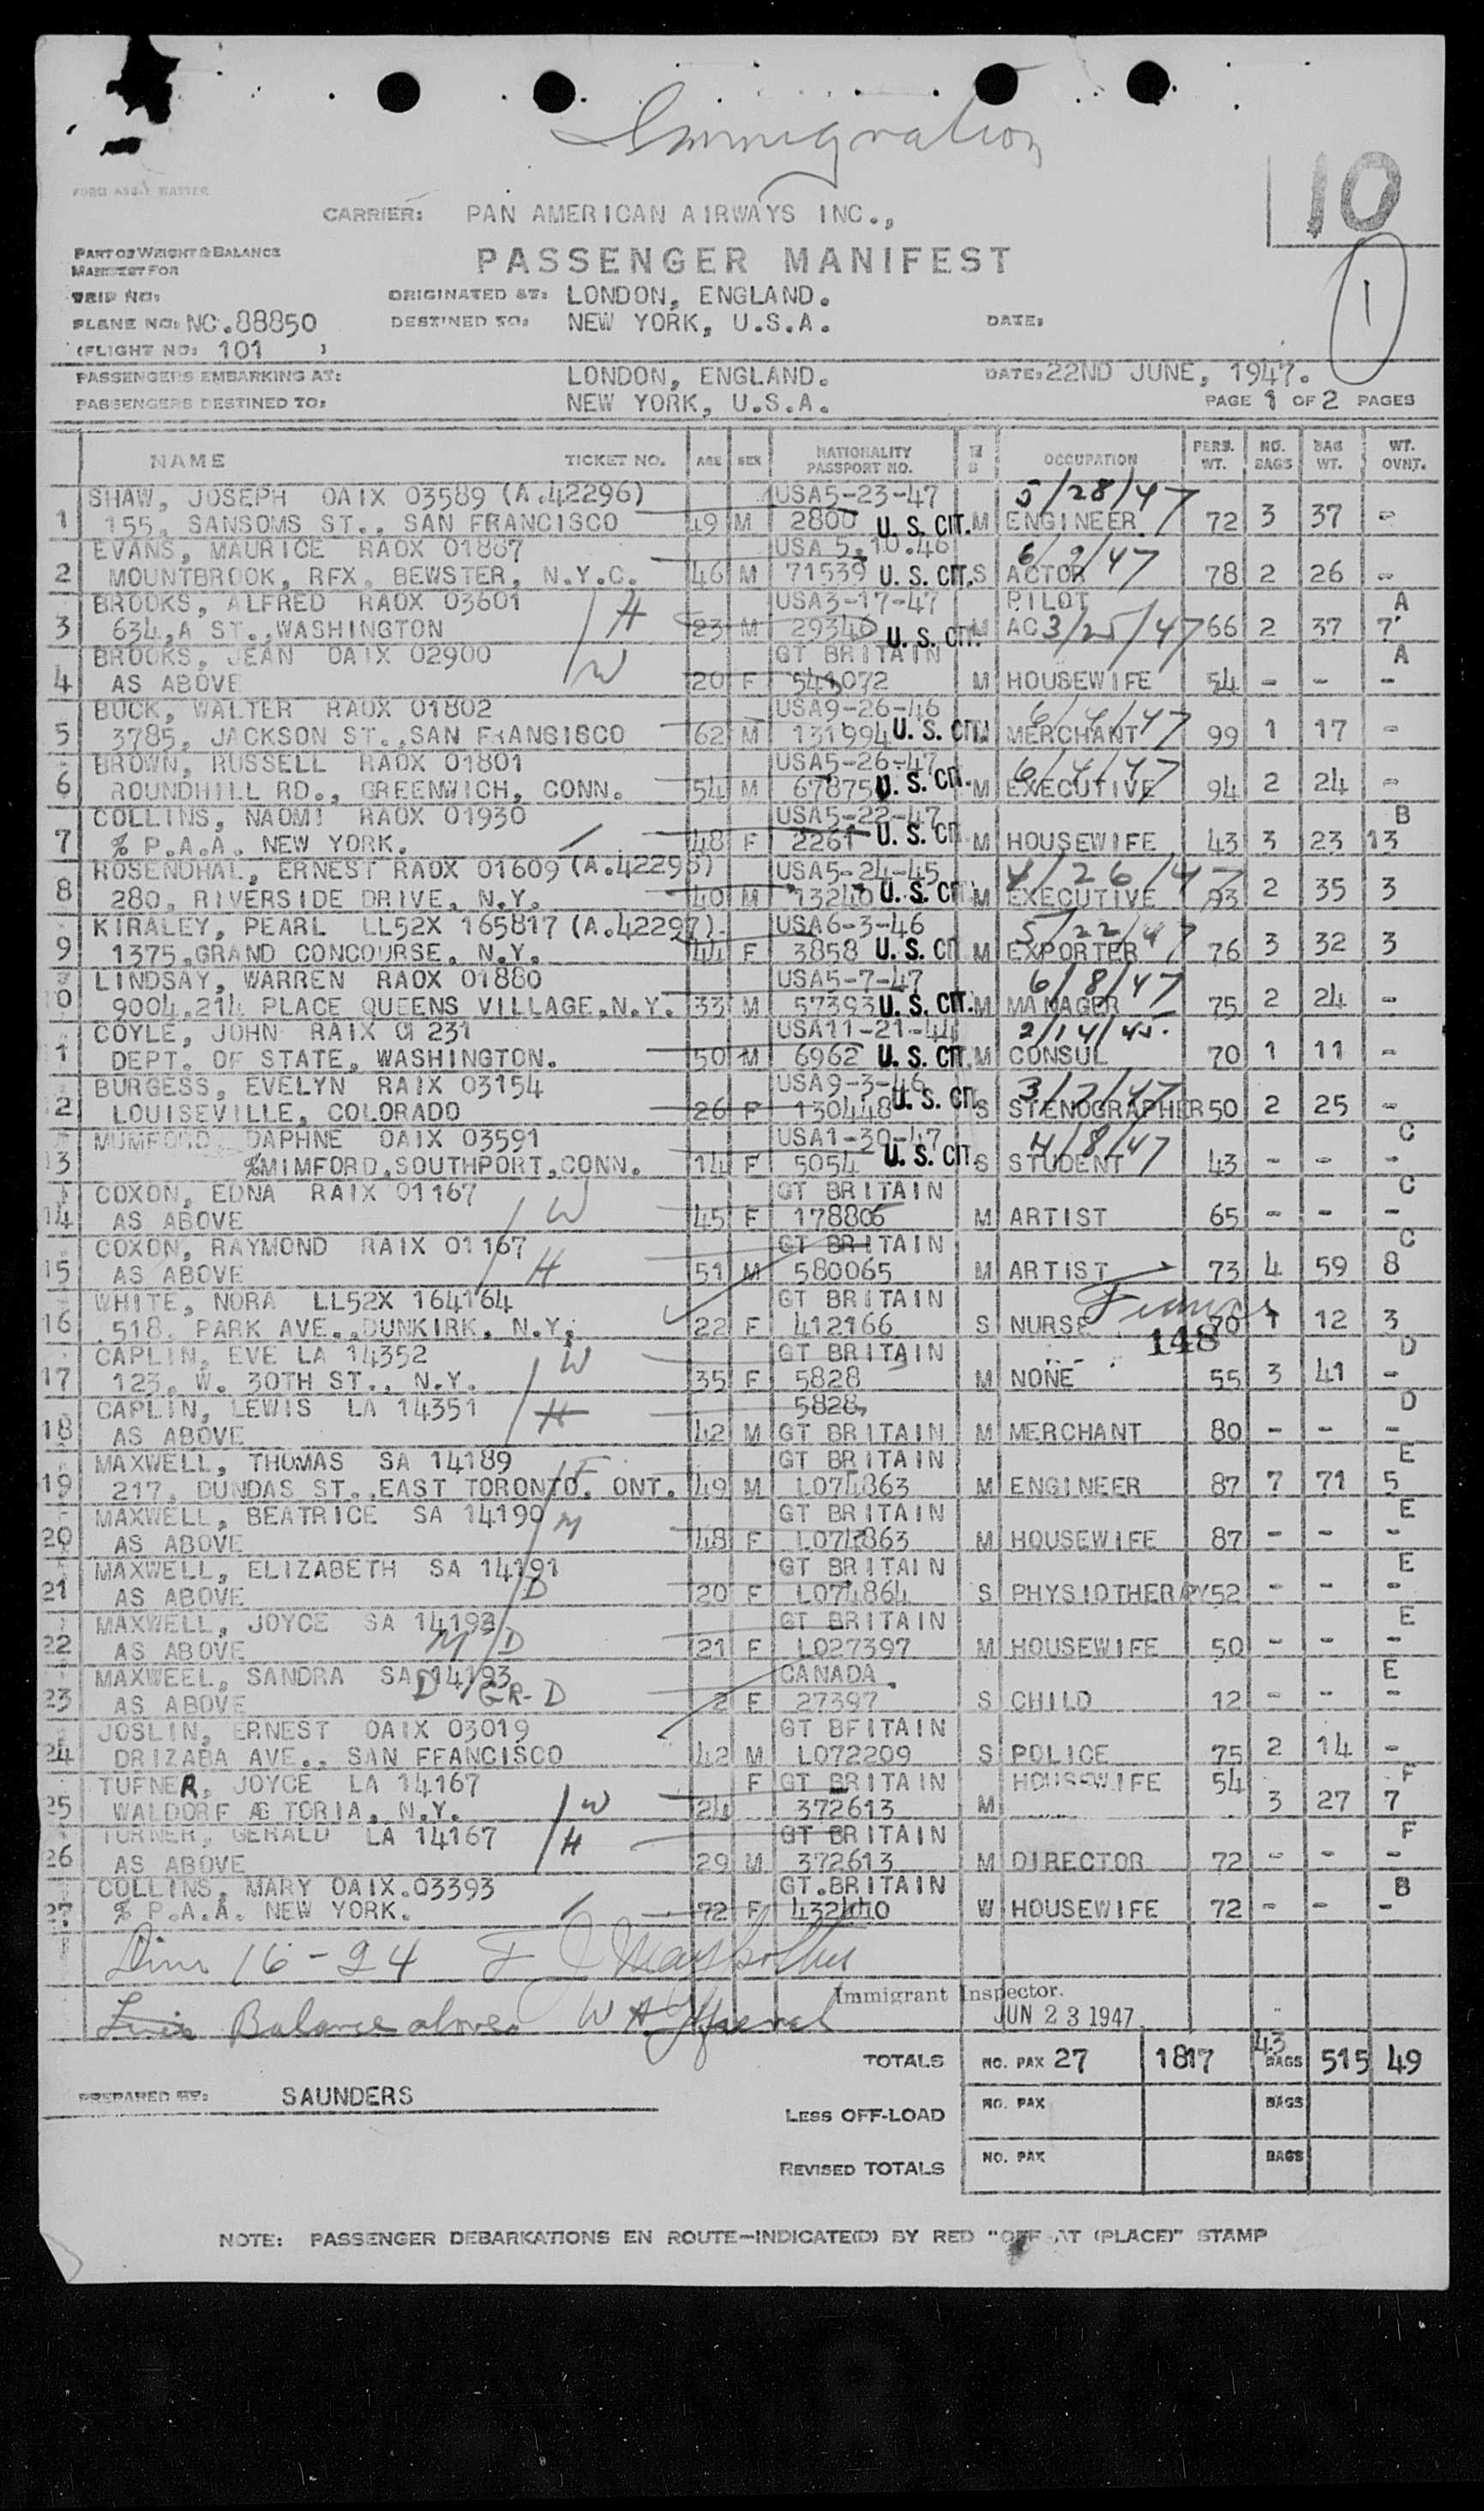 Immigration
10
1
FORM MASTER
CARRIER: PAN AMERICAN AIRWAYS INC.,
PART OF WEIGHT & BALANCE
MANIFEST FOR
PASSENGER MANIFEST
TRIP NO: ORIGINATED AT: LONDON, ENGLAND.
PLANE NO: NC.88850 DESTINED TO: NEW YORK, U.S.A. DATE:
(FLIGHT NO: 101 )
PASSENGERS EMBARKING AT: LONDON, ENGLAND. DATE: 22ND JUNE, 1947.
PASSENGERS DESTINED TO: NEW YORK, U.S.A. PAGE 1 OF 2 PAGES
NAME TICKET NO. AGE SEX NATIONALITY PASSPORT NO. M S OCCUPATION PERS. WT. NO. BAGS BAG WT. WT. OVNT.
SHAW, JOSEPH OAIX 03589 (A.42296) USA5-23-47 5/28/47
1 155, SANSOMS ST., SAN FRANCISCO 49 M 2800 U. S. CIT. M ENGINEER 72 3 37 -
EVANS, MAURICE RAOX 01887 USA 5.10.46 6/9/47
2 MOUNTBROOK, RFX, BEWSTER, N.Y.C. 46 M 71539 U. S. CIT. S ACTOR 78 2 26 -
BROOKS, ALFRED RAOX 03601 H USA3-17-47 PILOT A
3 634,A ST.,WASHINGTON 23 M 29346 U. S. CIT. M AC 3/25/47 66 2 37 7
BROOKS, JEAN OAIX 02900 W GT BRITAIN A
4 AS ABOVE 20 F 543072 M HOUSEWIFE 54 - - -
BUCK, WALTER RAOX 01802 USA9-26-46 6/4/47
5 3785, JACKSON ST.,SAN FRANSISCO 62 M 131994 U. S. CIT. M MERCHANT 99 1 17 -
BROWN, RUSSELL RAOX 01801 USA5-26-47 6/4/47
6 ROUNDHILL RD., GREENWICH, CONN. 54 M 67875 U. S. CIT. M EXECUTIVE 94 2 24 -
COLLINS, NAOMI RAOX 01930 USA5-22-47 B
7 % P.A.A. NEW YORK. 48 F 2261 U. S. CIT. M HOUSEWIFE 43 3 23 13
ROSENDHAL, ERNEST RAOX 01609 (A.42295) USA5-24-45 4/26/47
8 280, RIVERSIDE DRIVE, N.Y. 40 M 13240 U. S. CIT. M EXECUTIVE 93 2 35 3
KIRALEY, PEARL LL52X 165817 (A.42297). USA6-3-46 5/22/47
9 1375,GRAND CONCOURSE, N.Y. 44 F 3858 U. S. CIT M EXPORTER 76 3 32 3
LINDSAY, WARREN RAOX 01880 USA5-7-47 6/8/47
10 9004,214 PLACE QUEENS VILLAGE,N.Y. 33 M 57393 U. S. CIT. M MANAGER 75 2 24 -
COYLE, JOHN RAIX 01231 USA11-21-44 2/14/45.
11 DEPT. OF STATE, WASHINGTON. 50 M 6962 U. S. CIT. M CONSUL 70 1 11 -
BURGESS, EVELYN RAIX 03154 USA9-3-46 3/7/47
12 LOUISEVILLE, COLORADO 26 F 130448 U. S. CIT. S STENOGRAPHER 50 2 25 -
MUMFORD DAPHNE OAIX 03591 USA1-30-47 4/8/47 C
13 %MIMFORD,SOUTHPORT,CONN. 14 F 5054 U. S. CIT. S STUDENT 43 - - -
COXON, EDNA RAIX 01167 W GT BRITAIN C
14 AS ABOVE 45 F 178806 M ARTIST 65 - - -
COXON, RAYMOND RAIX 01167 H GT BRITAIN C
15 AS ABOVE 51 M 580065 M ARTIST 73 4 59 8
WHITE, NORA LL52X 164164 GT BRITAIN Frances
16 518, PARK AVE.,DUNKIRK, N.Y. 22 F 412166 S NURSE 148 70 1 12 3
CAPLIN, EVE LA 14352 W GT BRITAIN D
17 123, W. 30TH ST., N.Y. 35 F 5828 M NONE 55 3 41 -
CAPLIN, LEWIS LA 14351 H 5828, D
18 AS ABOVE 42 M GT BRITAIN M MERCHANT 80 - - -
MAXWELL, THOMAS SA 14189 F GT BRITAIN E
19 217, DUNDAS ST.,EAST TORONTO, ONT. 49 M L074863 M ENGINEER 87 7 71 5
MAXWELL, BEATRICE SA 14190 M GT BRITAIN E
20 AS ABOVE 48 F L074863 M HOUSEWIFE 87 - - -
MAXWELL, ELIZABETH SA 14191 D GT BRITAIN E
21 AS ABOVE 20 F L074864 S PHYSIOTHERAPY 52 - - -
MAXWELL, JOYCE SA 14192 M D GT BRITAIN E
22 AS ABOVE 21 F L027397 M HOUSEWIFE 50 - - -
MAXWEEL, SANDRA SA 14193 D GR-D CANADA. E
23 AS ABOVE 2 F 27397 S CHILD 12 - - -
JOSLIN, ERNEST OAIX 03019 GT BFITAIN
24 DRIZABA AVE., SAN FFANCISCO 42 M L072209 S POLICE 75 2 14 -
TUFNER, JOYCE LA 14167 W F GT BRITAIN HOUSEWIFE 54 F
25 WALDORF TORIA, N.Y. 24 372613 M 3 27 7
TURNER, GERALD LA 14167 H GT BRITAIN F
26 AS ABOVE 29 M 372613 M DIRECTOR 72 - - -
COLLINS, MARY OAIX.03393 GT.BRITAIN B
27 % P.A.A. NEW YORK. 72 F 432440 W HOUSEWIFE 72 - - -
16-24 F J
Immigrant Inspector.
Balance above W A
JUN 23 1947
TOTALS NO. PAX 27 1817 43 BAGS 515 49
PREPARED BY: SAUNDERS
LESS OFF-LOAD NO. PAX BAGS
REVISED TOTALS NO. PAX BAGS
NOTE: PASSENGER DEBARKATIONS EN ROUTE—INDICATE(D) BY RED "OFF AT (PLACE)" STAMP